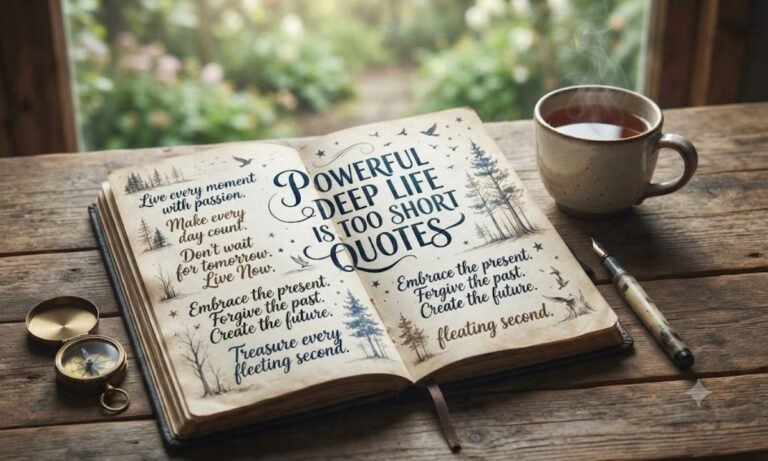 Live every moment
with passion.
Make every
day count.
Don't wait
for tomorrow.
Live Now.
Embrace the present.
Forgive the past.
Create the future.
Treasure every
fleeting second.
POWERFUL
DEEP LIFE
IS TOO SHORT
QUOTES
Embrace the present.
Forgive the past.
Create the future.
fleating second.